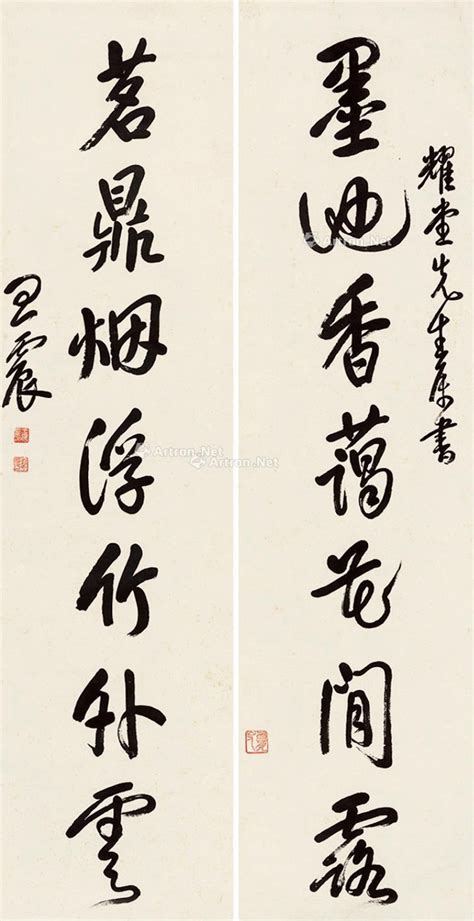 耀堂先生属書
墨池香藹花間露
茗鼎烟浮竹外雲
王震
Artron.Net
Artron.Net
Artron.Net